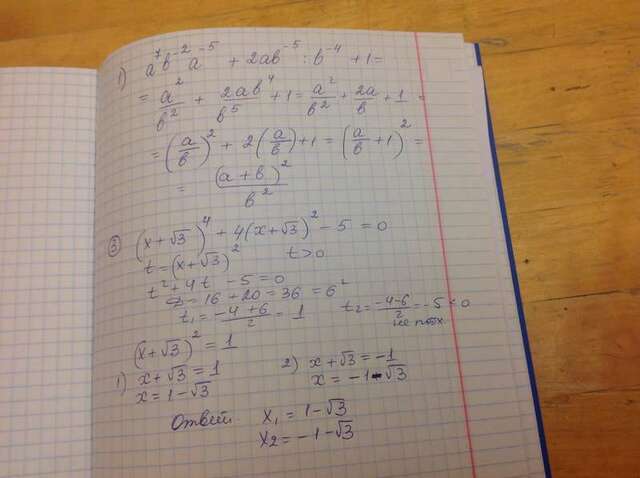 1) a⁷b⁻²a⁻⁵ + 2ab⁻⁵ : b⁻⁴ + 1 =
= a²/b² + 2ab⁴/b⁵ + 1 = a²/b² + 2a/b + 1 =
= (a/b)² + 2(a/b) + 1 = (a/b + 1)² =
= (a + b)²/b²
③ (x+√3)⁴ + 4(x+√3)² - 5 = 0
t = (x+√3)² t>0
t² + 4t - 5 = 0
D = 16 + 20 = 36 = 6²
t₁ = (-4+6)/2 = 1 t₂ = (-4-6)/2 = -5 < 0
не подх.
(x+√3)² = 1
1) x+√3 = 1 2) x+√3 = -1
x = 1-√3 x = -1-√3
Ответ: x₁ = 1-√3
x₂ = -1-√3